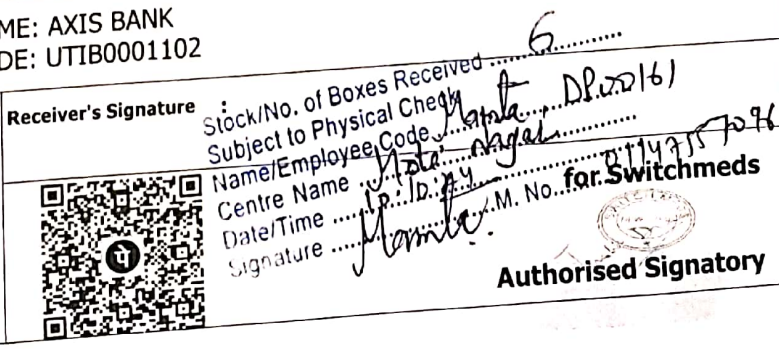 ME: AXIS BANK
DE: UTIB0001102
Receiver's Signature :
Stock/No. of Boxes Received .......... 6 ..........
Subject to Physical Check
Name/Employee Code Mamta DP00161
Centre Name Moti Nagar
Date/Time
Signature Mamta M. No.
for Switchmeds
Authorised Signatory